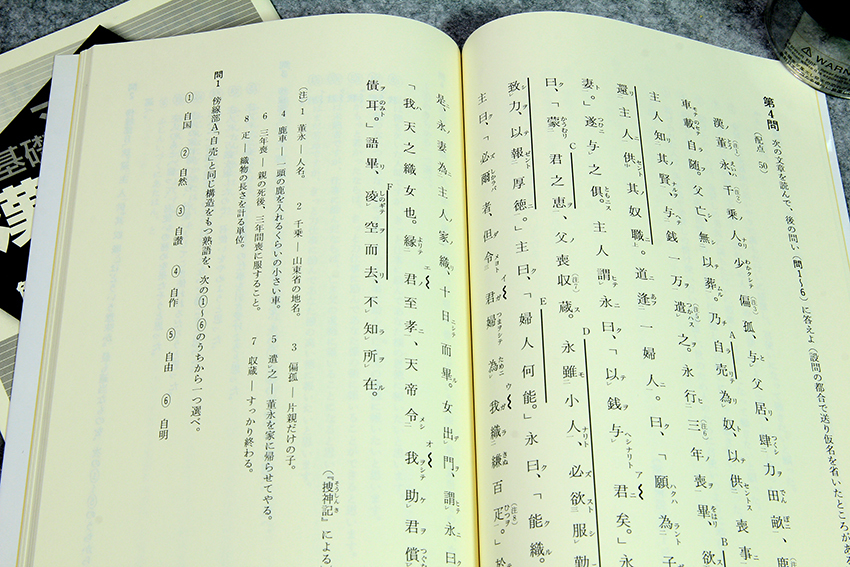 第4問 次の文章を読んで、後の問い(問1〜6)に答えよ(設問の都合で送り仮名を省いたところがあ
(配点 50)
漢董永、千乗人。少偏孤、与父居、肆力田畝、鹿
車載自随。父亡、無以葬。乃自売為奴、以供喪事
主人知其賢、与銭一万遣之。永行三年喪畢、欲
還主人供其奴職。道逢一婦人。曰、「願為子
妻。」遂与之俱。主人謂永曰、「以銭与君矣。」永
曰、「蒙君之恵、父喪収蔵。永雖小人、必欲服勤
致力、以報厚徳。」主曰、「婦人何能。」永曰、「能織。」
主曰、「必爾者、但令君婦為我織縑百疋。」於
是、永妻為主人家織、十日而畢。女出門、謂永曰
「我天之織女也。縁君至孝、天帝令我助君償
債耳。」語畢、凌空而去、不知所在。
(『捜神記』による
(注) 1 董永―人名。 2 千乗―山東省の地名。 3 偏孤―片親だけの子。
4 鹿車―一頭の鹿を入れるくらいの小さい車。 5 遣之―董永を家に帰らせてやる。
6 三年喪―親の死後、三年間喪に服すること。 7 収蔵―すっかり終わる。
8 疋―織物の長さを計る単位。
問1 傍線部A「自売」と同じ構造をもつ熟語を、次の①〜⑥のうちから一つ選べ。
① 自国 ② 自然 ③ 自讃 ④ 自作 ⑤ 自由 ⑥ 自明
WARN